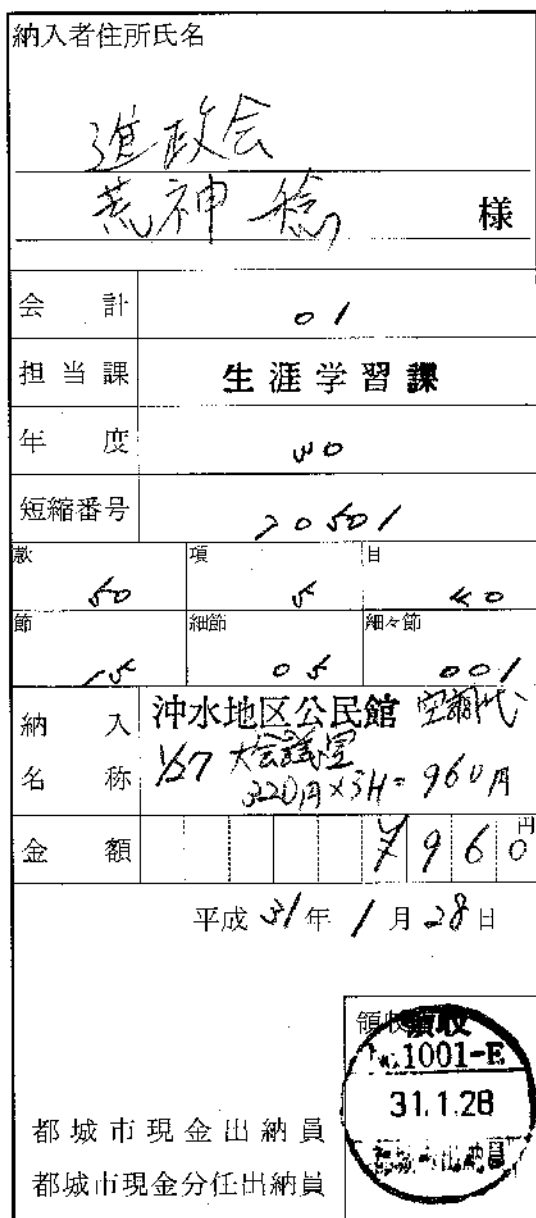 納入者住所氏名
進政会
荒神 稔 様
会計 01
担当課 生涯学習課
年度 30
短縮番号 20501
款 項 目
50 5 40
節 細節 細々節
15 05 001
納入名称 沖水地区公民館 空調代
1/27 大会議室
320円×3H=960円
金額 ¥960円
平成31年1月28日
領収
領収
No.1001-E
31.1.28
都城市現金出納員
都城市現金分任出納員